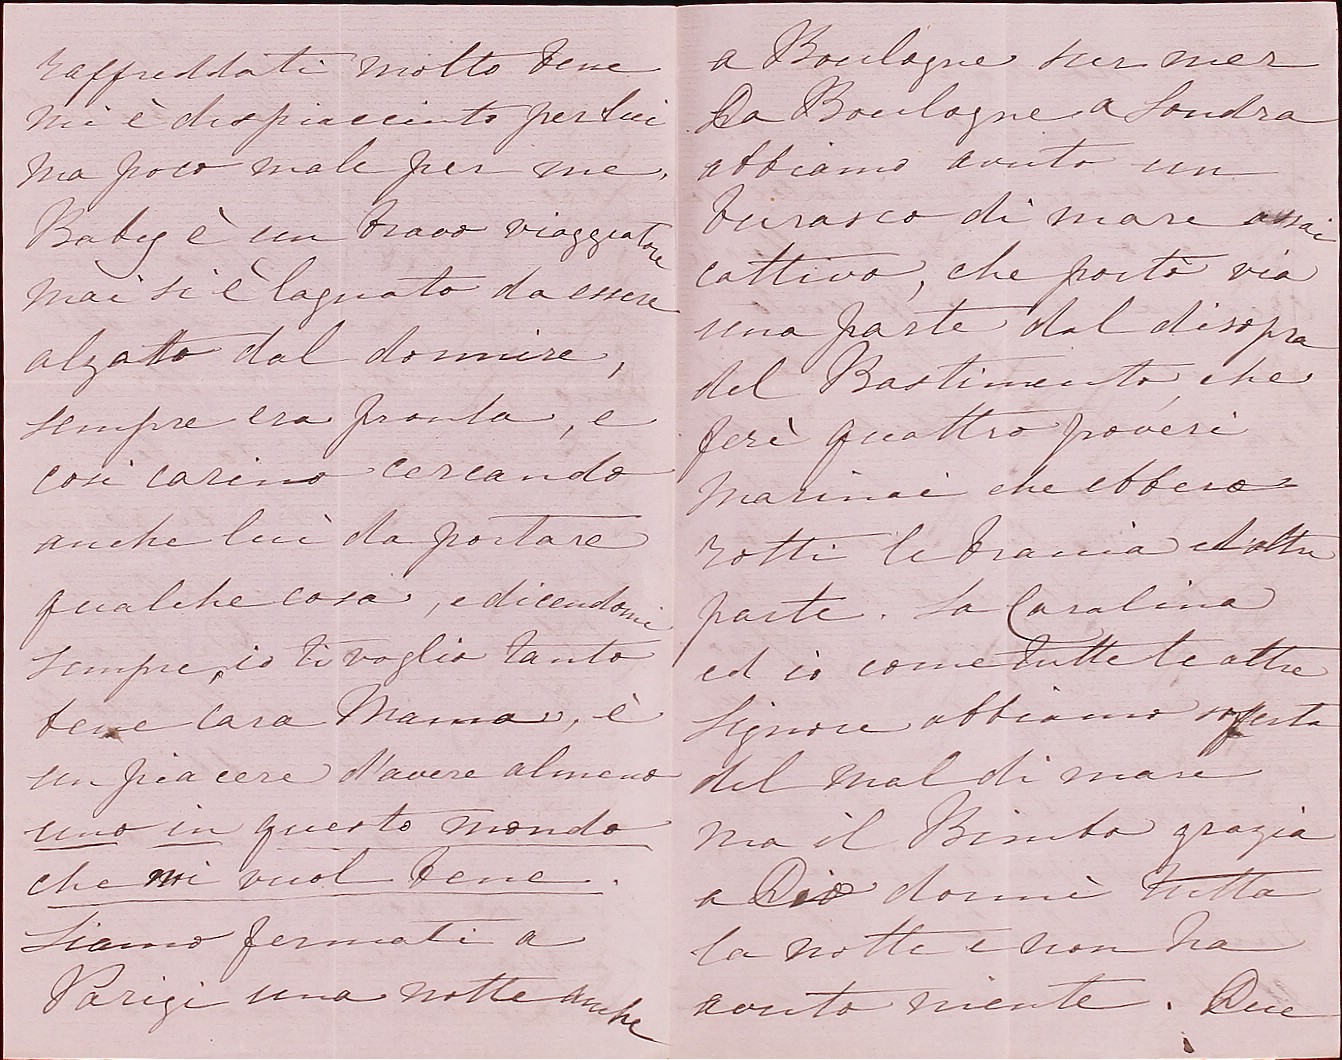 raffreddati molto bene
mi è dispiacciuto per lui
ma poco male per me,
Baby è un bravo viaggiatore
mai si è lagnato da essere
alzatto dal dormire,
sempre era pronta, e
così carino cercando
anche lui da portare
qualche cosa, e dicendomi
sempre, io ti voglio tanto
bene cara Mama, è
un piacere d'avere almeno
uno in questo mondo
che mi vuol bene.
Siamo fermati a
Parigi una notte anche
a Boulogne sur mer
Da Boulogne a Londra
abbiamo avuto un
burasco di mare assai
cattivo, che portò via
una parte dal disopra
del Bastimento, che
ferì quattro poveri
marinai che ebbero
rotti le braccia ed altre
parte. La Carolina
ed io come tutte le altre
Signore abbiamo soferto
del mal di mare
ma il Bimbo grazia
a Dio dormì tutta
la notte e non ha
avuto niente. Due